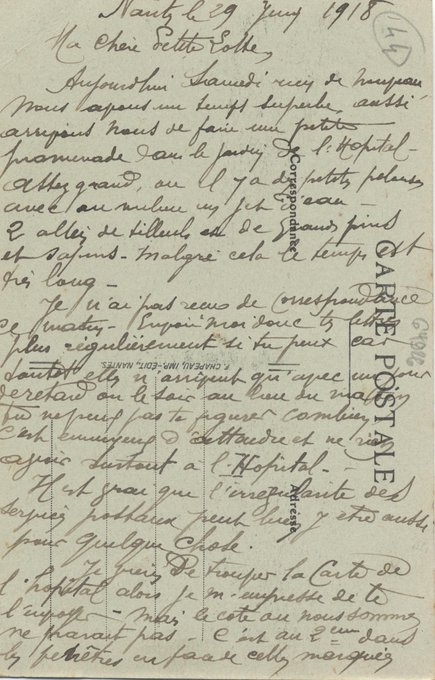 Nantes le 29 Juin 1918
Ma Chère Petite
Aujourd'hui Samedi rien de nouveau
nous avons un temps superbe, aussi
arrivons nous de faire une petite
promenade dans le jardin de l'Hopital -
assez grand, ou il y a de petites pelouses
avec au milieu un jet d'eau -
2 allées de tilleuls et de grands pins
et sapins - Malgré cela le temps est
très long -
Je n'ai pas reçu de correspondance
ce matin - Envoie moi donc tes lettres
plus régulièrement si tu peux car
toutes elles n'arrivent qu'avec un jour
de retard ou le soir au lieu du matin
tu ne peux pas te figurer combien
c'est ennuyeux d'attendre et ne rien
avoir surtout à l'Hopital -
Il est vrai que l'irrégularité des
services postaux peut bien y être aussi
pour quelque chose.
Je viens de trouver la Carte de
l'hopital alors je m'empresse de te
l'envoyer - mais le coté ou nous sommes
ne parait pas - C'est au 2eme dans
les fenêtres en façade celles marquées
144
Correspondance
CARTE POSTALE
Adresse
F. CHAPEAU, IMP.-ÉDIT., NANTES